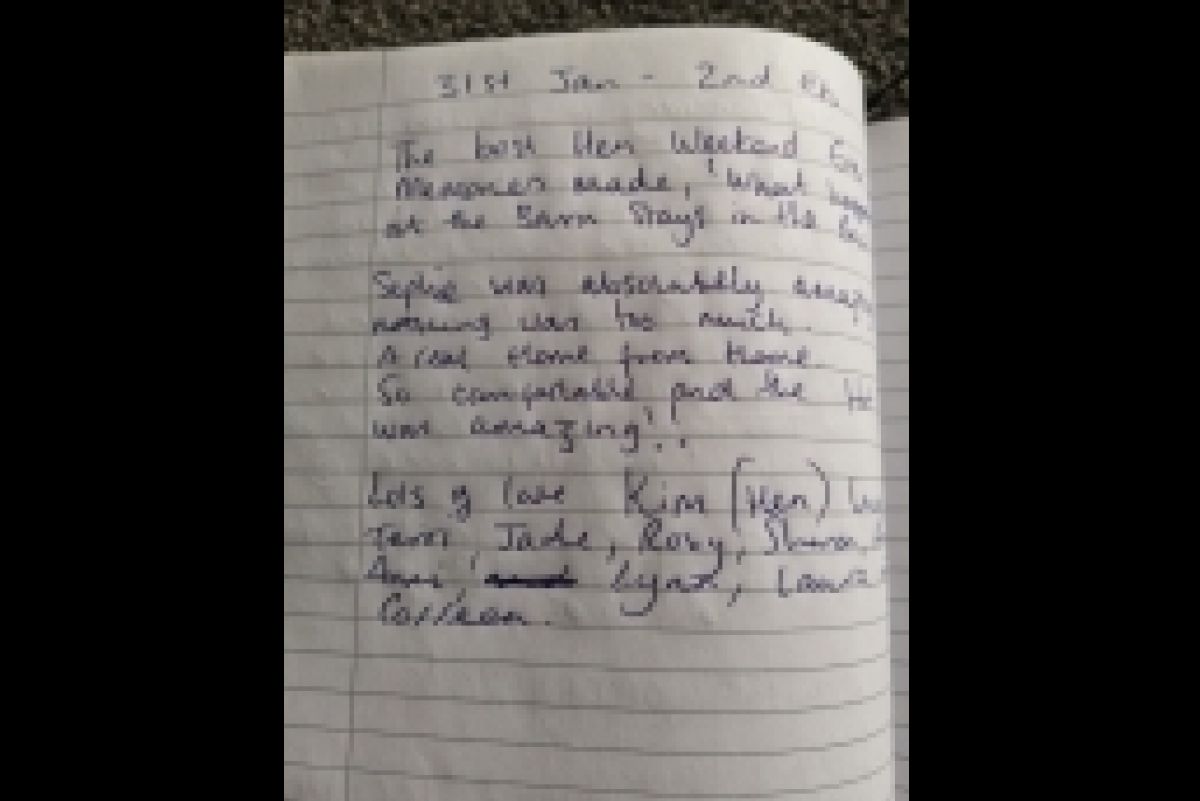 31st Jan - 2nd Feb
The best Hen Weekend
Memories made, 'What
at the Barn Stays in the
Sophie was absolutely
nothing was too much.
A real Home from Home.
So comfortable and the
was amazing!!
Lots of love Kim (Hen)
Terri, Jade, Roxy,
Lynx,
Colleen.